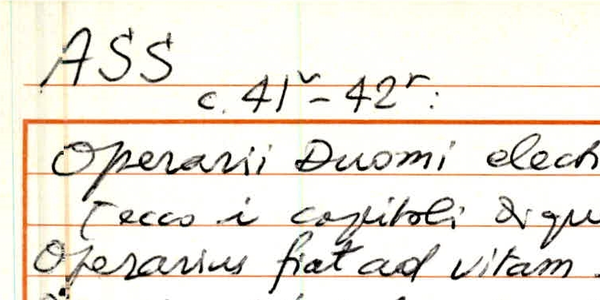 ASS
c. 41v - 42r:
Operarii Duomi elect
[ecco i capitoli di qu
Operarius fiat ad vitam